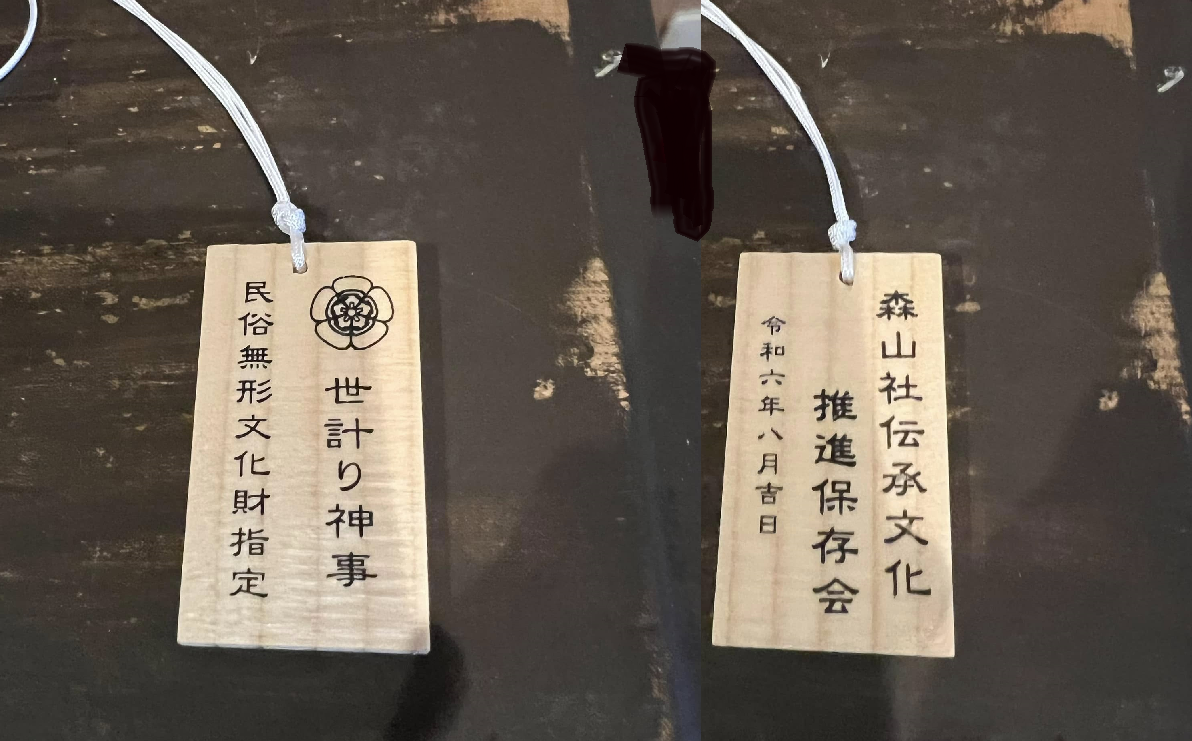 世計り神事
民俗無形文化財指定
森山社伝承文化
推進保存会
令和六年八月吉日